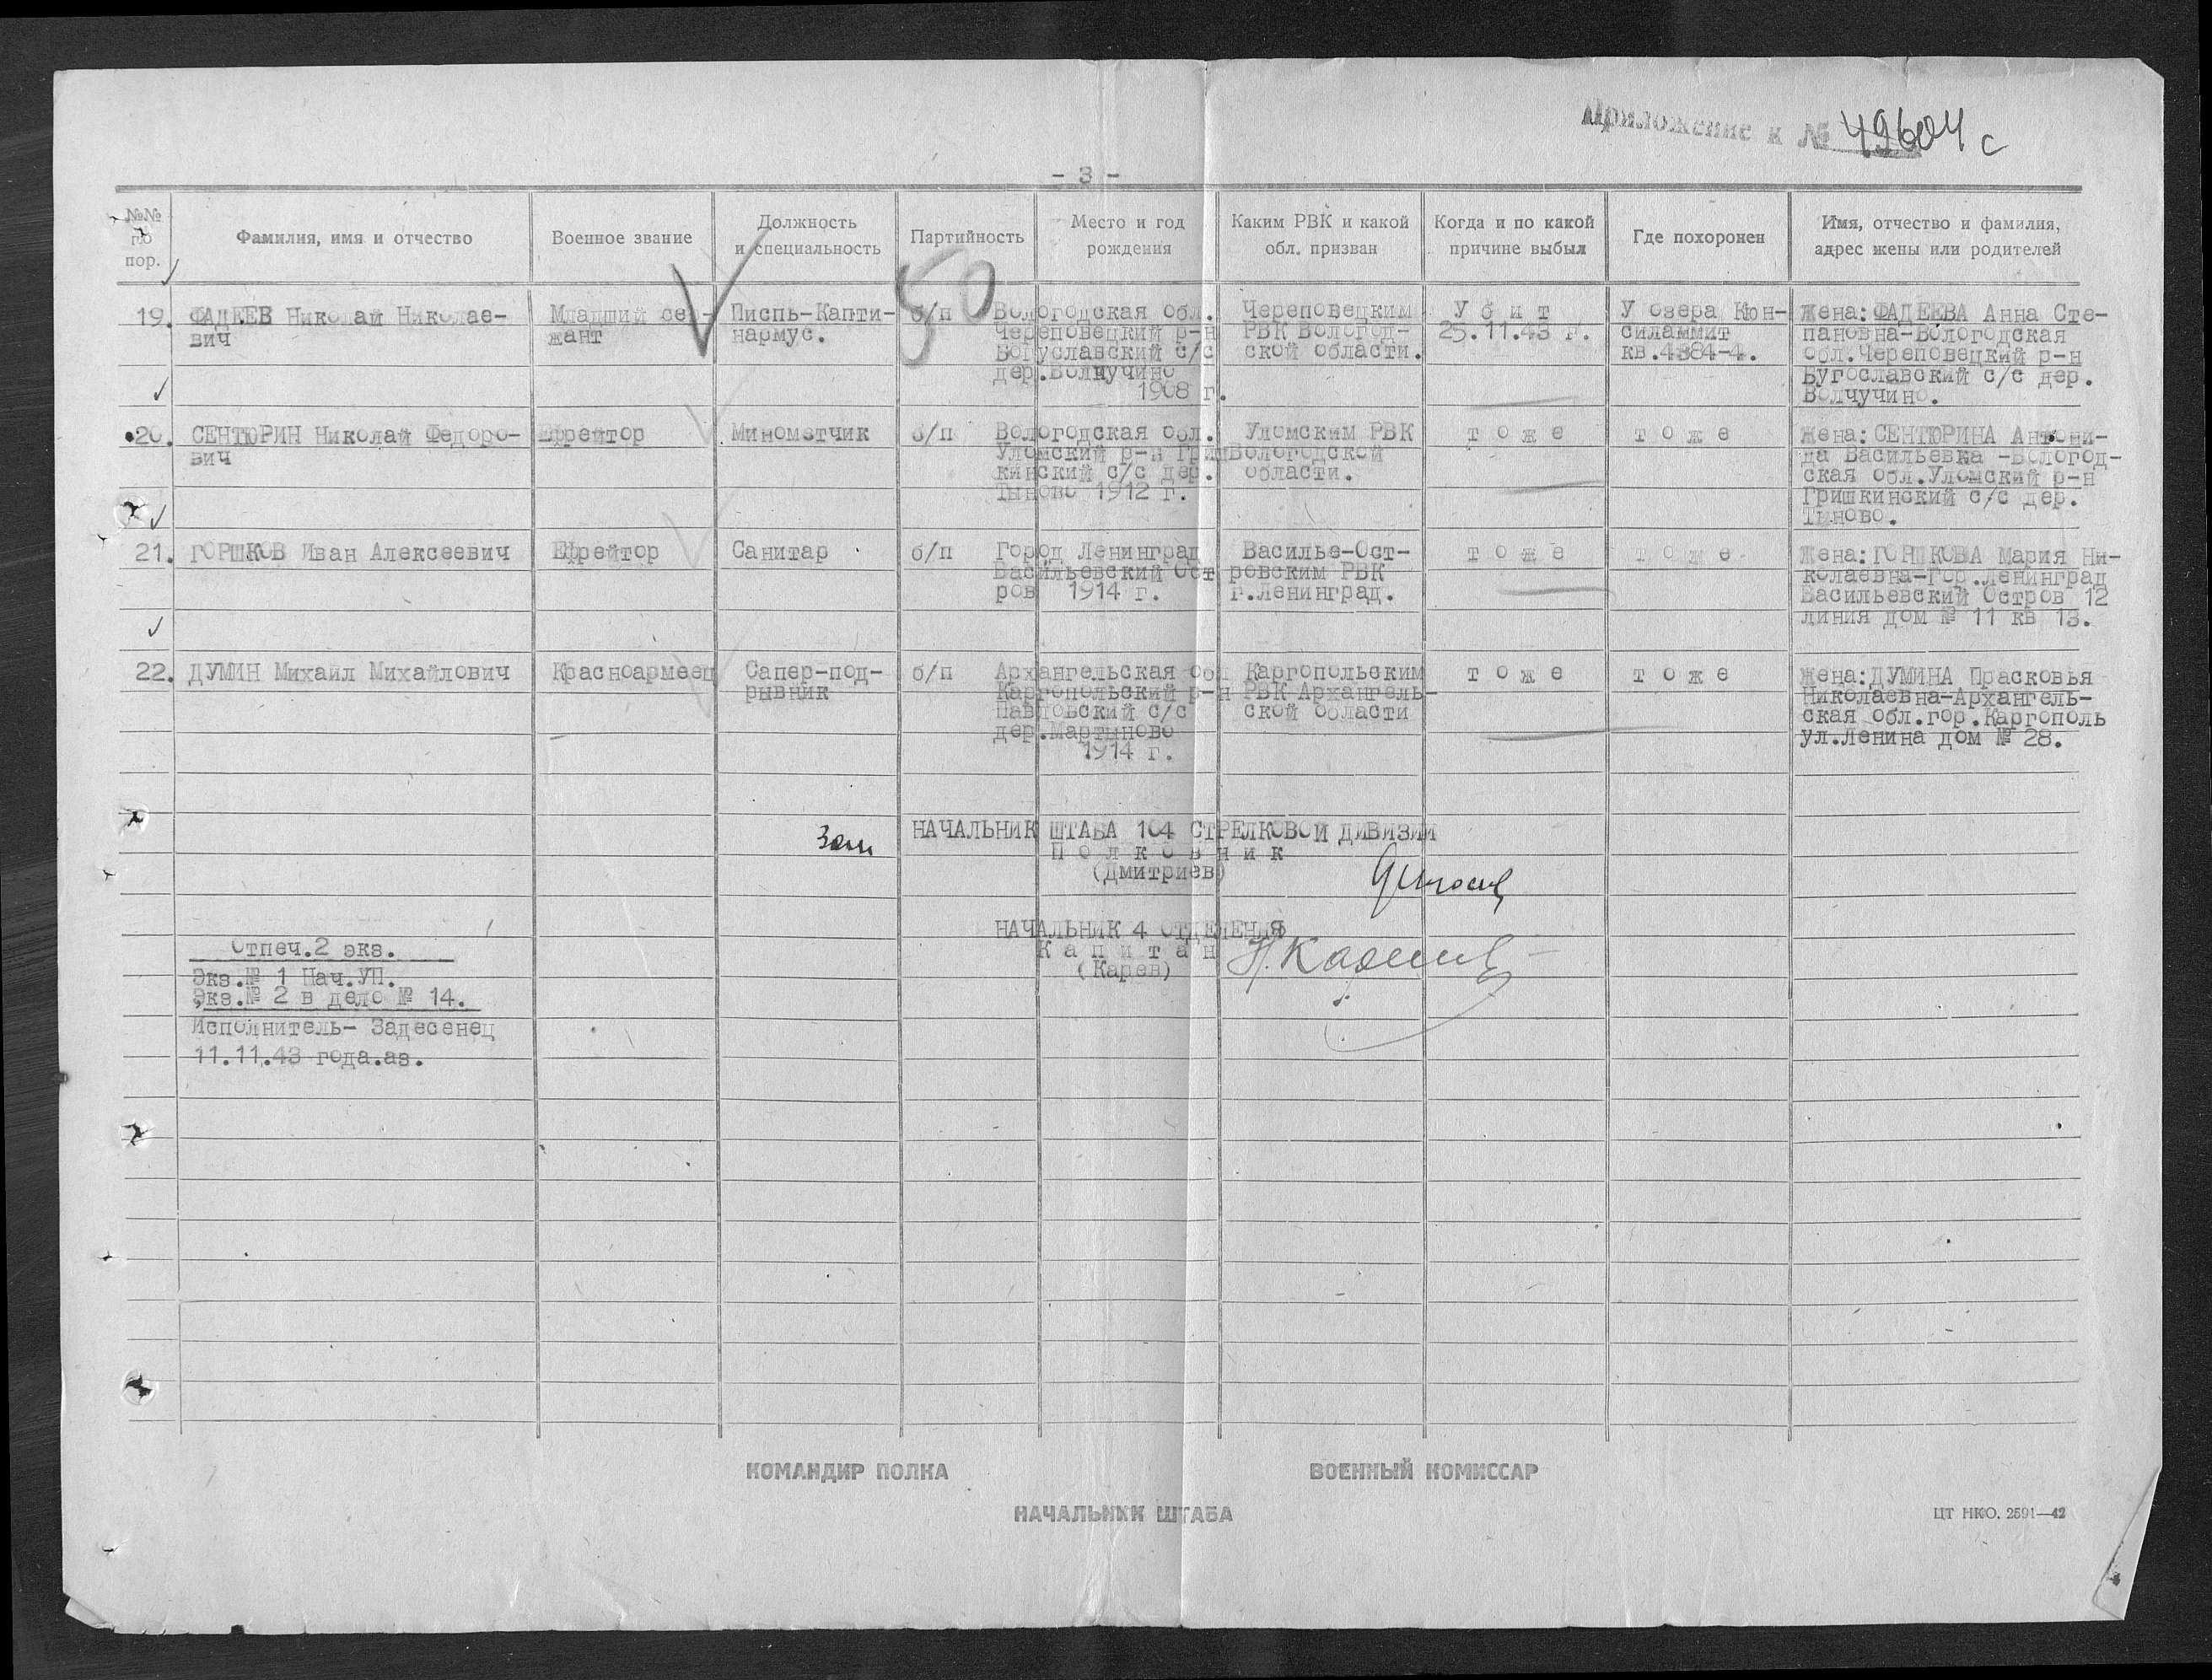 Приложение к № 49604 с
- 3 -
№№ по пор.
Фамилия, имя и отчество
Военное звание
Должность и специальность
Партийность
Место и год рождения
Каким РВК и какой обл. призван
Когда и по какой причине выбыл
Где похоронен
Имя, отчество и фамилия, адрес жены или родителей
50
19.
ФАДЕЕВ Николай Николае-
вич
Младший сер-
жант
Писпь-Капти-
нармус.
б/п
Вологодская обл.
Череповецкий р-н
Богуславский с/с
дер.Волчучино
1908 г.
Череповецким
РВК Вологод-
ской области.
У б и т
25.11.43 г.
У озера Кюн-
силаммит
кв.4384-4.
Жена: ФАДЕЕВА Анна Сте-
пановна-Вологодская
обл.Череповецкий р-н
Бугославский с/с дер.
Волчучино.
20.
СЕНТЮРИН Николай Федоро-
вич
Ефрейтор
Минометчик
б/п
Вологодская обл.
Уломский р-н Гриш
кинский с/с дер.
Тыново 1912 г.
Уломским РВК
Вологодской
области.
т о ж е
т о ж е
Жена: СЕНТЮРИНА Антони-
да Васильевка -Вологод-
ская обл.Уломский р-н
Гришкинский с/с дер.
Тыново.
21.
ГОРШКОВ Иван Алексеевич
Ефрейтор
Санитар
б/п
Город Ленинград
Васильевский Ост
ров 1914 г.
Василье-Ост-
ровским РВК
г.Ленинград.
т о ж е
т о ж е
Жена: ГОРШКОВА Мария Ни-
колаевна-Гор.Ленинград
Васильевский Остров 12
линия дом № 11 кв 13.
22.
ДУМИН Михаил Михайлович
Красноармеец
Сапер-под-
рывник
б/п
Архангельская обл
Каргопольский р-н
Павловский с/с
дер.Мартыново
1914 г.
Каргопольским
РВК Архангель-
ской области
т о ж е
т о ж е
Жена: ДУМИНА Прасковья
Николаевна-Архангель-
ская обл.гор.Каргополь
ул.Ленина дом № 28.
Зам НАЧАЛЬНИК ШТАБА 104 СТРЕЛКОВОЙ ДИВИЗИИ
П о л к о в н и к
(Дмитриев)
НАЧАЛЬНИК 4 ОТДЕЛЕНИЯ
К а п и т а н
(Карев)
Отпеч.2 экз.
Экз.№ 1 Нач.УП.
Экз.№ 2 в дело № 14.
Исполнитель- Задесенец
11.11.43 года.аз.
КОМАНДИР ПОЛКА
ВОЕННЫЙ КОМИССАР
НАЧАЛЬНИК ШТАБА
ЦТ НКО. 2591—42